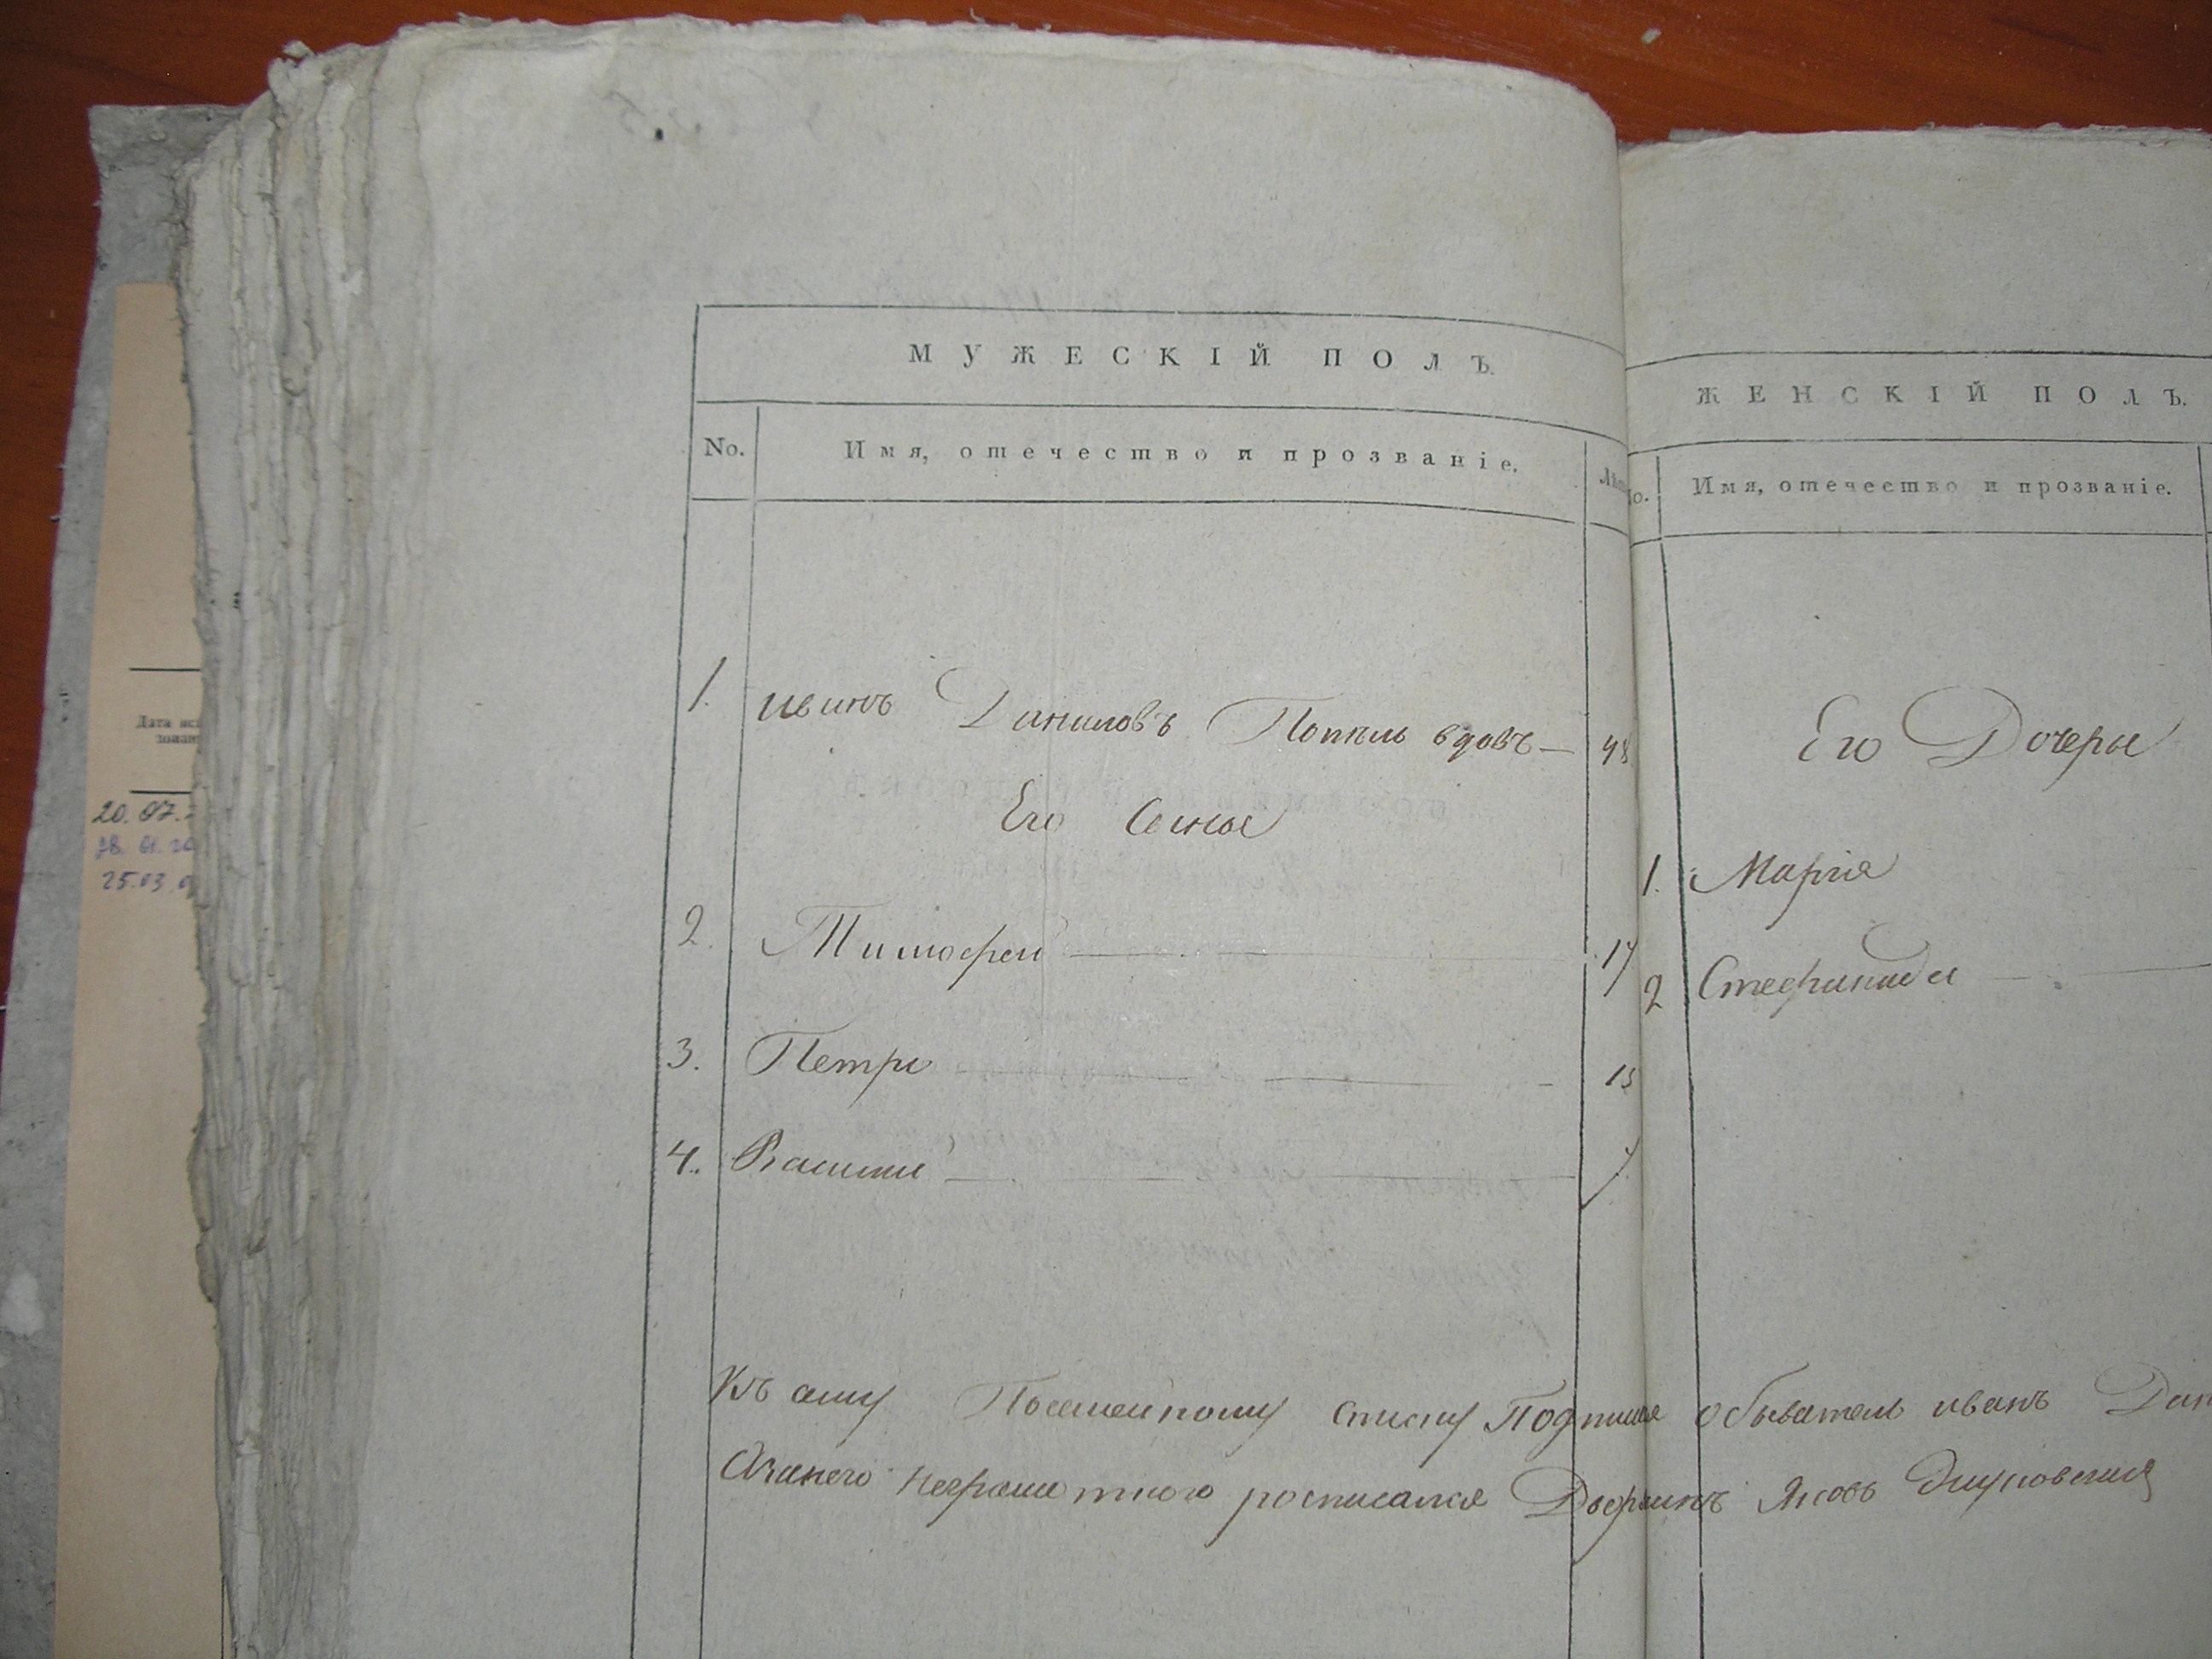 МУЖЕСКІЙ ПОЛЪ.
No. Имя, отечество и прозваніе.
1. иванъ Даниловъ Попель вдовъ — 48
Его Сыны
2. Тимофей — 17
3. Петръ — 15
4. Василий — 7
ЖЕНСКІЙ ПОЛЪ.
Имя, отечество и прозваніе.
Его Дочеры
1. Марія
2 Стефанида —
Къ сему Посемейному списку Подписал обыватель иванъ Дан
Азанего неграмотного росписался Дворянинъ Яковъ
Дата
20.07.
28.01.20
25.03.0